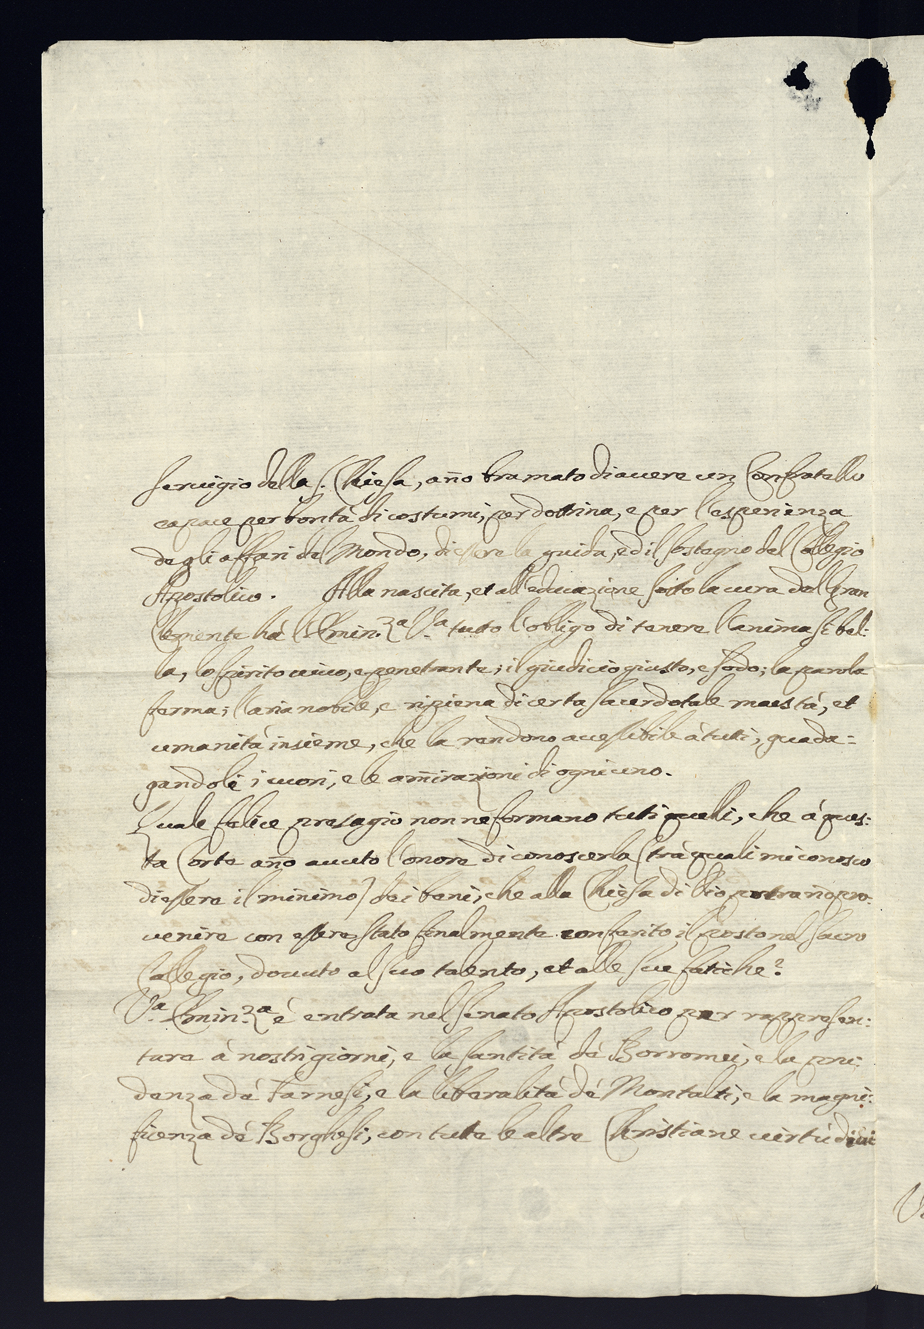 servigio della S. Chiesa, año bramato di avere un Confratello
capace per bontà di costumi, per dotrina, e per l'esperienza
degli affari del Mondo, di essere la guida, ed il sostegno del Collegio
Apostolico. Alla nascita, et all'educazione sotto la cura del Gran
Clemente hà l'Emin.za V.a tutto l'obligo di tenere l'anima sì bel:
la, lo spirito vivo, e penetrante; il giudicio giusto, e sodo; la parola
ferma; l'aria nobile, e ripiena di certa sacerdotale maestà, et
umanità insieme, che la rendono accessibile à tutti, guada:
gandole i cuori, e le amirazioni di ogni uno.
Quale felice presagio non ne formano tutti quelli, che à ques:
ta Corte año avuto l'onore di conoscerla (trà quali mi conosco
di essere il minimo) dei beni, che alla Chiesa di Dio potrañ pro
venire con essere stato finalmente conferito il posto nel Sacro
Collegio, dovuto al suo talento, et alle sue fatiche?
V.a Emin.za é entrata nel Senato Apostolico per rappresen:
tare à nostri giorni, e la santità dé Borromei, e la pru:
denza dé Farnesi, e la liberalità dé Montalti, e la magni:
ficenza dé Borghesi, con tutte le altre Christiane virtù